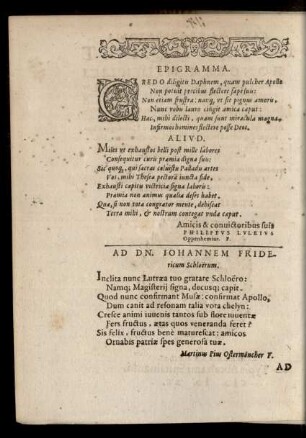 EPIGRAMMA.
CREDO diligitis Daphnem, quam pulcher Apollo
Non potuit precibus flectere sæpe suis:
Non etiam frustra: namq; et sit pignus amoris,
Nunc vobis lauro cingit amica caput:
Hac, mihi dilecti, quam sunt miracula magna,
Infirmos homines flectere posse Deos.
ALIUD.
Miles ut exhaustos belli post mille labores
Consequitur curis præmia digna suis:
Sic quoq; qui sacras coluistis Palladis artes
Vos, mihi Theseâ pectora iuncta fide,
Exhausti capitis victricia signa laboris:
Præmia non animus qualia deses habet.
Quæ, si non tota congrater mente, dehiscat
Terra mihi, & nostrum contegat unda caput.
Amicis & convictoribus suis
PHILIPPUS LULEIUS
Oppenhemius. F.
AD DN. IOHANNEM FRIDE-
ricum Schloërum.
Inclita nunc Lutræa tuo gratare Schloëro:
Namq; Magisterij signa, ducusq; capit.
Quod nunc confirmant Musæ: confirmat Apollo,
Dum canit ad resonam talia vota chelyn:
Cresce animi iuvenis tantos sub flore iuventæ
Fers fructus, ætas quos veneranda feret?
Sis felix, fructus bene maturescat: amicos
Ornabis patriæ spes generosa tuæ.
Martinus Pius Ostermüncher F.
AD